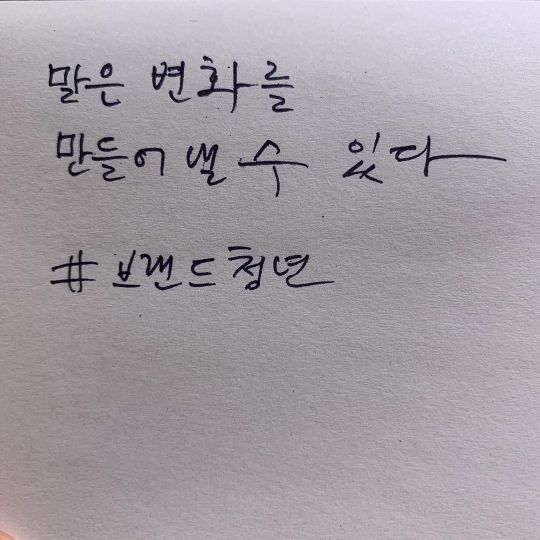 말은 변화를
만들어 낼 수 있다
#브랜드청년